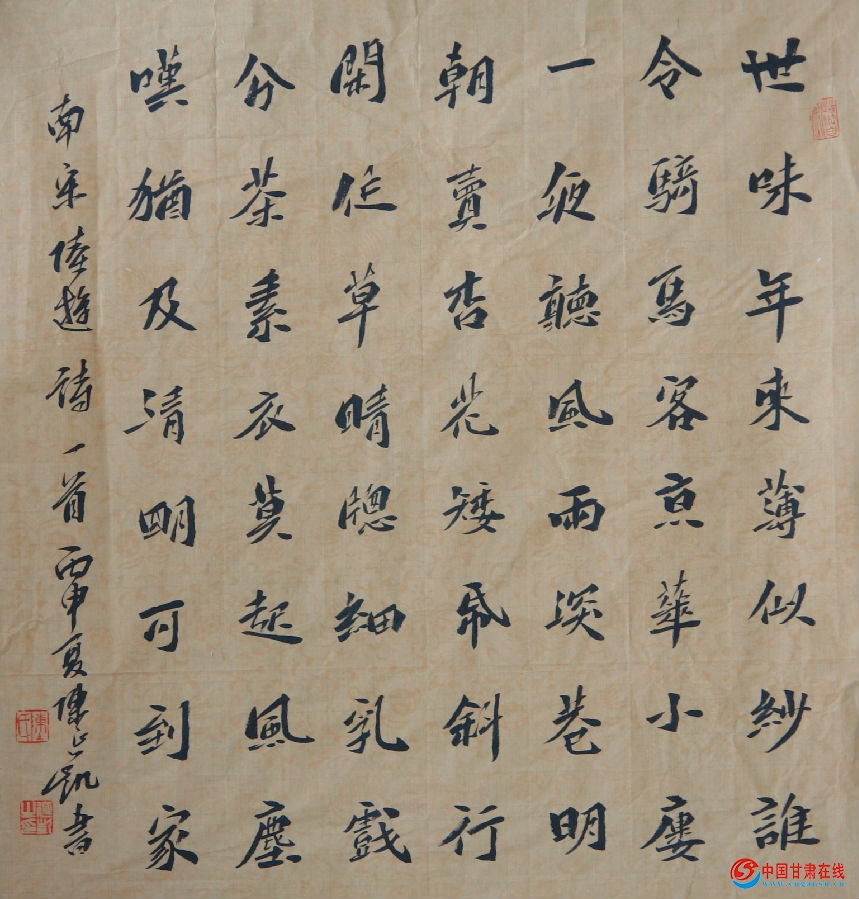 世味年来薄似紗誰
令騎馬客京華小廔
一夜聽風雨深巷明
朝賣杏花矮帋斜行
閑作草晴牕細乳戲
分茶素衣莫起風塵
嘆猶及清明可到家
南宋陸遊詩一首丙申夏陳正凱書
中国甘肃在线